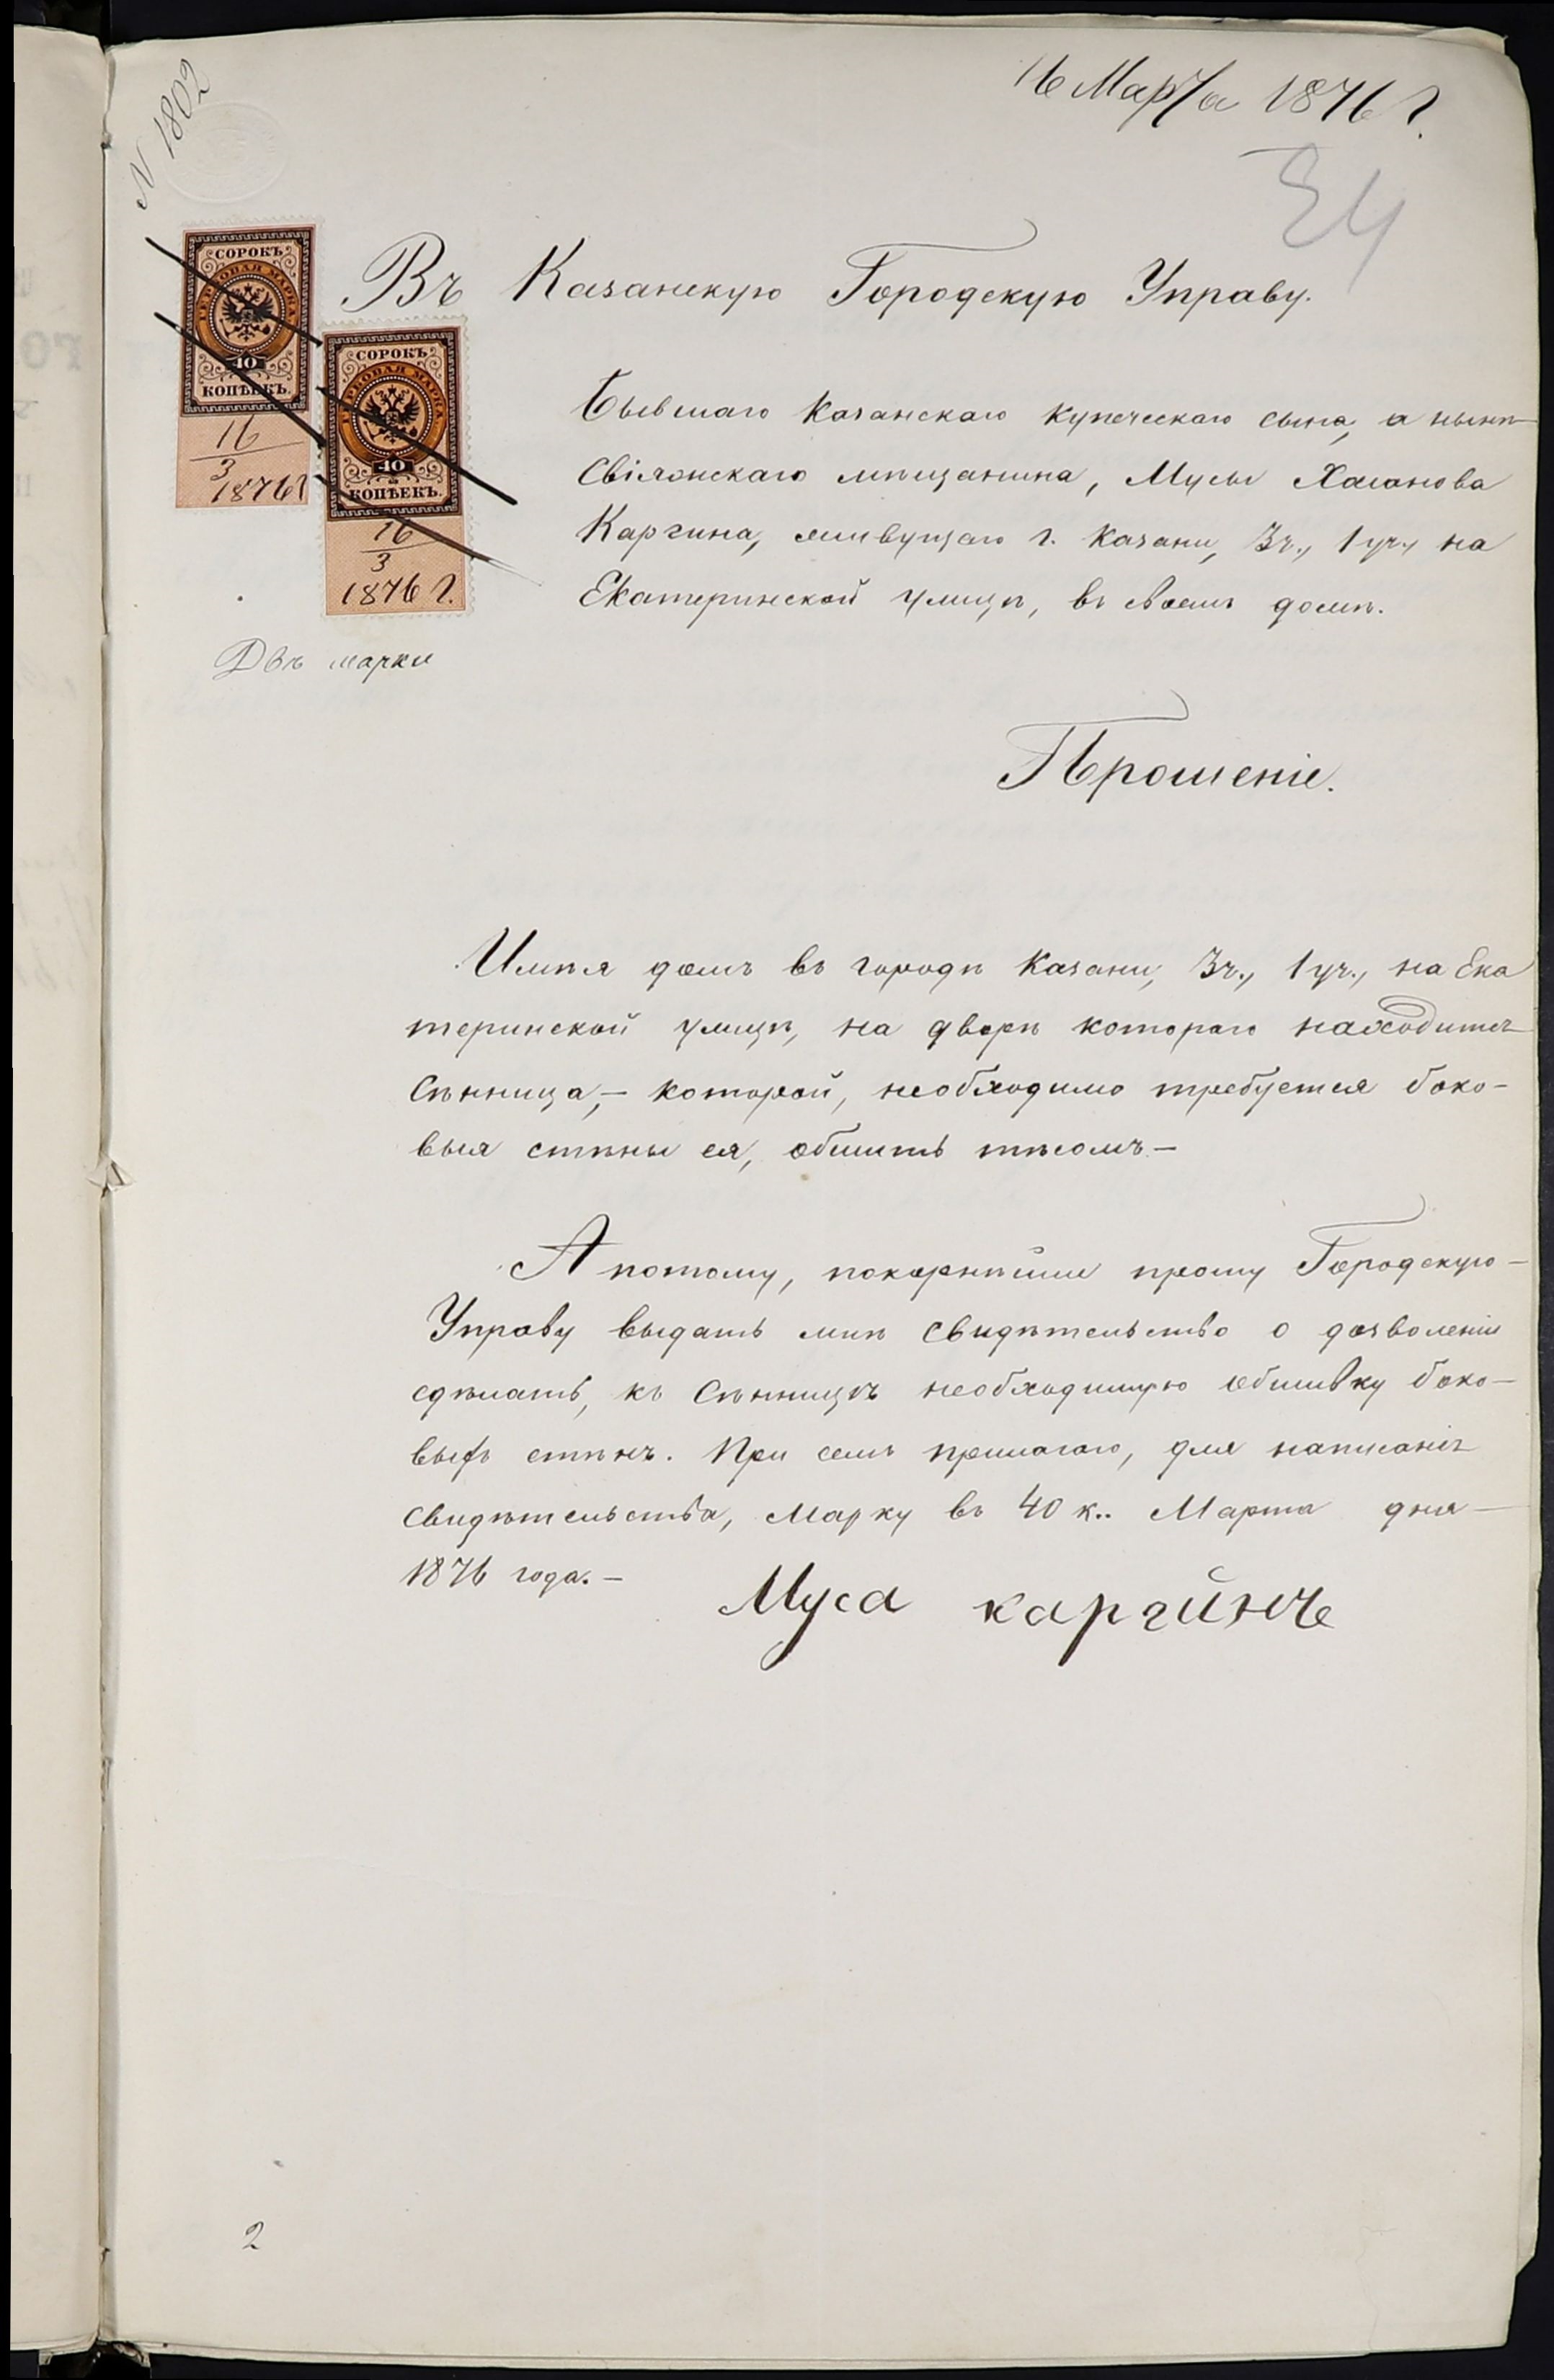 N 1802
16 Марта 1876 г.
34
СОРОКЪ
ГЕРБОВАЯ МАРКА
40
КОПѢЕКЪ.
16
3
1876 г
СОРОКЪ
ГЕРБОВАЯ МАРКА
40
КОПѢЕКЪ.
16
3
1876 г.
Двѣ марки
Въ Казанскую Городскую Управу.
Бывшаго Казанскаго купеческаго сына, а нынѣ
Свіяжскаго мѣщанина, Мусы Хасанова
Каргина, живущаго г. Казани, 3 ч., 1 уч., на
Екатеринской улицѣ, въ своемъ домѣ.
Прошеніе.
Имѣя домъ въ городѣ Казани, 3 ч., 1 уч., на Ека
теринской улицѣ, на дворѣ котораго находится
Сѣнница,– которой, необходимо требуется боко–
выя стѣны ея, обшить тѣсомъ –
А потому, покорнѣйше прошу Городскую –
Управу выдать мнѣ свидѣтельство о дозволеніи
сдѣлать, къ Сѣнницѣ необходимую обшивку боко–
выхъ стѣнъ. При семъ прилагаю, для написанія
свидѣтельства, марку въ 40 к.. Марта дня –
1876 года. –
Муса каргинъ
2